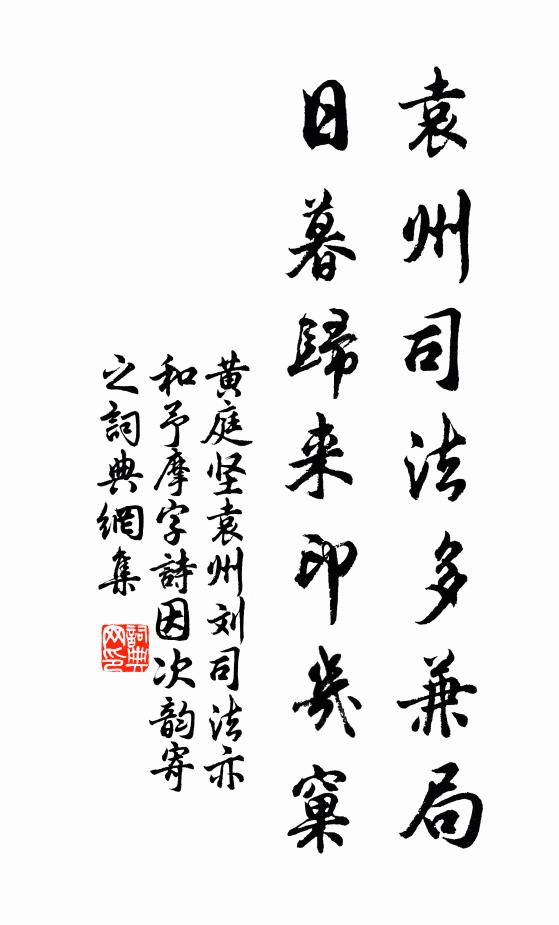 袁州司法多兼局
日暮歸来印幾窠
黄庭坚袁州刘司法亦
和予摩字詩因次韵寄
之詞典網集
詞典
网印